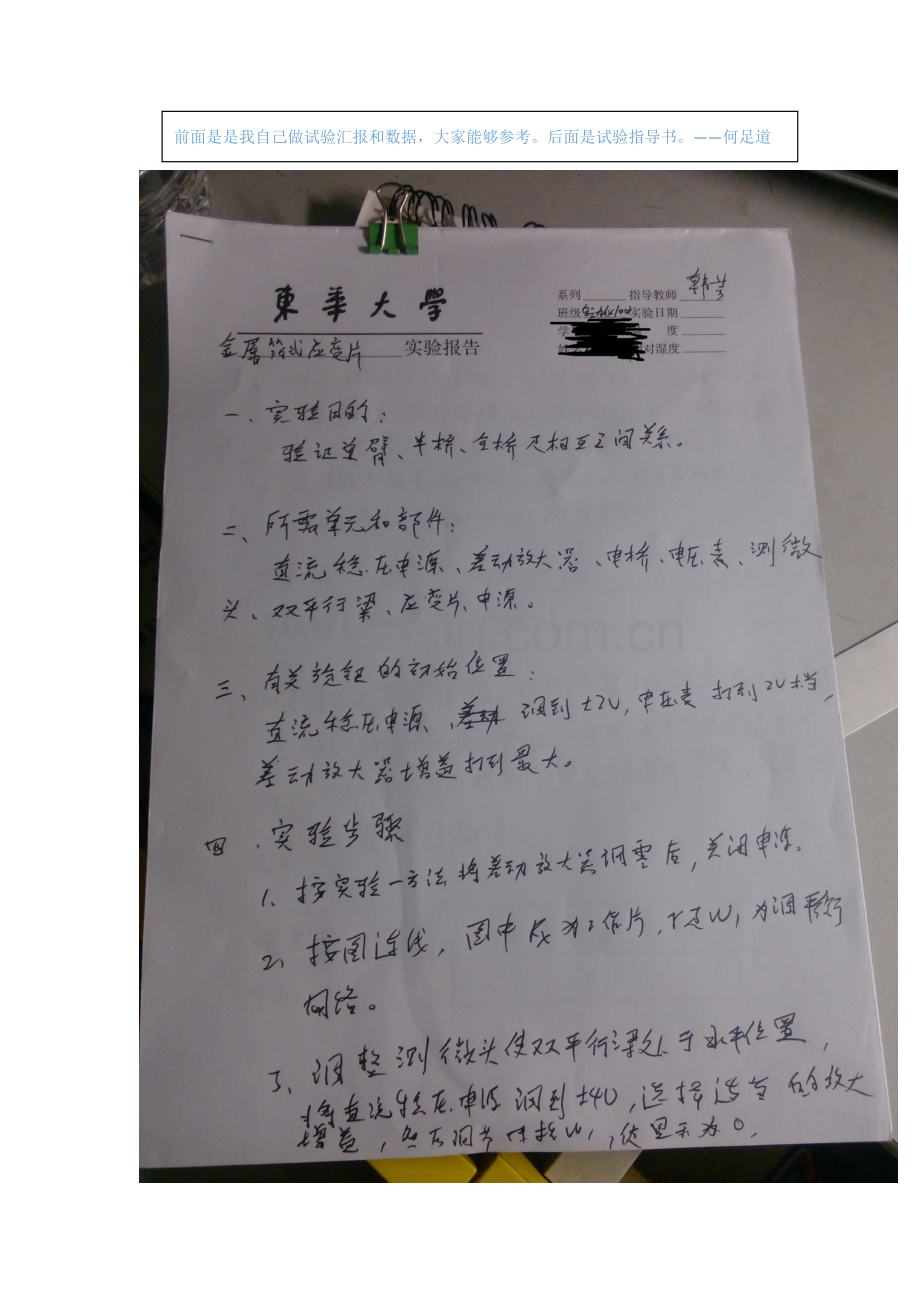 前面是是我自己做试验汇报和数据，大家能够参考。后面是试验指导书。——何足道
東華大學
系列 指导教师
班级 实验日期
学 度
姓 对湿度
金属箔式应变片 实验报告
一、实验目的：
验证单臂、半桥、全桥及相互之间关系。
二、所需单元和部件：
直流稳压电源、差动放大器、电桥、电压表、测微
头、双平行梁、应变片、电源。
com.cn
三、有关旋钮的初始位置：
直流稳压电源、 调到±2V，电压表打到2V档，
差动放大器增益打到最大。
四、实验步骤
1、按实验一方法将差动放大器调零后，关闭电源。
2、按图连线，图中Rx为工作片，r及W1为调平衡
网络。
3、调整测微头使双平行梁处于水平位置，
将直流稳压电源调到±4V，选择适当的放大
增益，然后调节电桥W1，使显示为0，